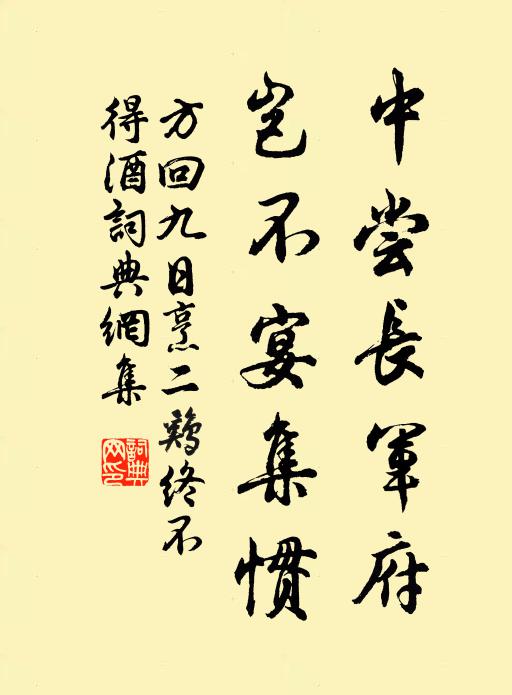 中尝長軍府
岂不宴集惯
方回九日烹二鷄终不
得酒詞典網集
詞典
网印